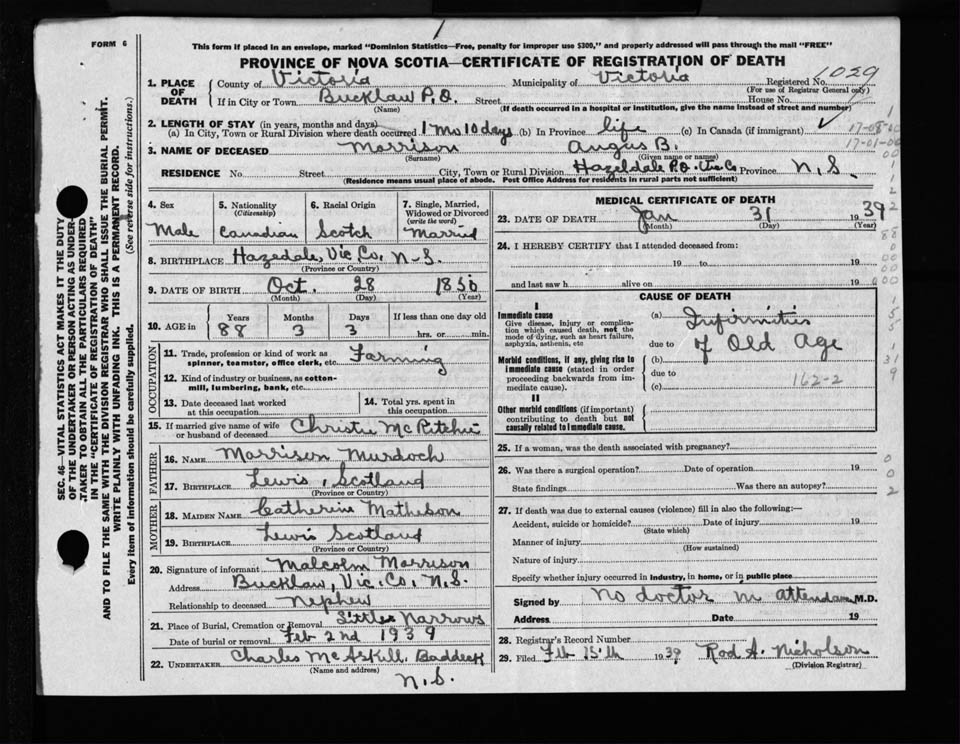 FORM 6
This form if placed in an envelope, marked "Dominion Statistics—Free, penalty for improper use $300," and properly addressed will pass through the mail "FREE"
PROVINCE OF NOVA SCOTIA—CERTIFICATE OF REGISTRATION OF DEATH
1. PLACE OF DEATH County of Victoria Municipality of Victoria Registered No. 1029
(For use of Registrar General only)
If in City or Town Bucklaw P.O. Street House No.
(Name) (If death occurred in a hospital or institution, give the name instead of street and number)
2. LENGTH OF STAY (in years, months and days)
(a) In City, Town or Rural Division where death occurred 1 mo 10 days (b) In Province life (c) In Canada (if immigrant)
3. NAME OF DECEASED Morrison Angus B.
(Surname) (Given name or names)
RESIDENCE No. Street City, Town or Rural Division Hazeldale P.O. Vic Co Province N.S.
(Residence means usual place of abode. Post Office Address for residents in rural parts not sufficient)
4. Sex Male
5. Nationality (Citizenship) Canadian
6. Racial Origin Scotch
7. Single, Married, Widowed or Divorced (write the word) Married
8. BIRTHPLACE Hazedale, Vic. Co. N-S.
(Province or Country)
9. DATE OF BIRTH Oct. 28 1850
(Month) (Day) (Year)
10. AGE in Years 88 Months 3 Days 3 If less than one day old hrs. or min.
OCCUPATION
11. Trade, profession or kind of work as spinner, teamster, office clerk, etc. Farming
12. Kind of industry or business, as cotton-mill, lumbering, bank, etc.
13. Date deceased last worked at this occupation
14. Total yrs. spent in this occupation
15. If married give name of wife or husband of deceased Christie McRitchie
FATHER
16. NAME Morrison Murdoch
17. BIRTHPLACE Lewis, Scotland
(Province or Country)
MOTHER
18. MAIDEN NAME Catherine Matheson
19. BIRTHPLACE Lewis Scotland
(Province or Country)
20. Signature of informant Malcolm Morrison
Address Bucklaw, Vic. Co, N.S.
Relationship to deceased nephew
21. Place of Burial, Cremation or Removal Little Narrows
Date of burial or removal Feb 2nd 1939
22. UNDERTAKER Charles McAskill. Baddeck
(Name and address)
N.S.
MEDICAL CERTIFICATE OF DEATH
23. DATE OF DEATH Jan 31 1939
(Month) (Day) (Year)
24. I HEREBY CERTIFY that I attended deceased from:
19 to 19
and last saw h alive on 19
CAUSE OF DEATH
I
Immediate cause
Give disease, injury or complication which caused death, not the mode of dying, such as heart failure, asphyxia, asthenia, etc
(a) Infirmities
due to of Old Age
Morbid conditions, if any, giving rise to immediate cause (stated in order proceeding backwards from immediate cause).
(b)
due to
(c) 162-2
II
Other morbid conditions (if important) contributing to death but not causally related to immediate cause.
25. If a woman, was the death associated with pregnancy?
26. Was there a surgical operation? Date of operation 19
State findings Was there an autopsy?
27. If death was due to external causes (violence) fill in also the following:—
Accident, suicide or homicide? Date of injury 19
(State which)
Manner of injury
(How sustained)
Nature of injury
Specify whether injury occurred in industry, in home, or in public place
Signed by no doctor in attendance M.D.
Address Date 19
28. Registrar's Record Number
29. Filed Feb 15th 1939 Rod A. Nicholson
(Division Registrar)
SEC. 46—VITAL STATISTICS ACT MAKES IT THE DUTY
OF THE UNDERTAKER OR PERSON ACTING AS UNDER-
TAKER TO OBTAIN ALL THE PARTICULARS REQUIRED
IN THE "CERTIFICATE OF REGISTRATION OF DEATH"
AND TO FILE THE SAME WITH THE DIVISION REGISTRAR WHO SHALL ISSUE THE BURIAL PERMIT.
WRITE PLAINLY WITH UNFADING INK. THIS IS A PERMANENT RECORD.
Every item of information should be carefully supplied. (See reverse side for instructions.)